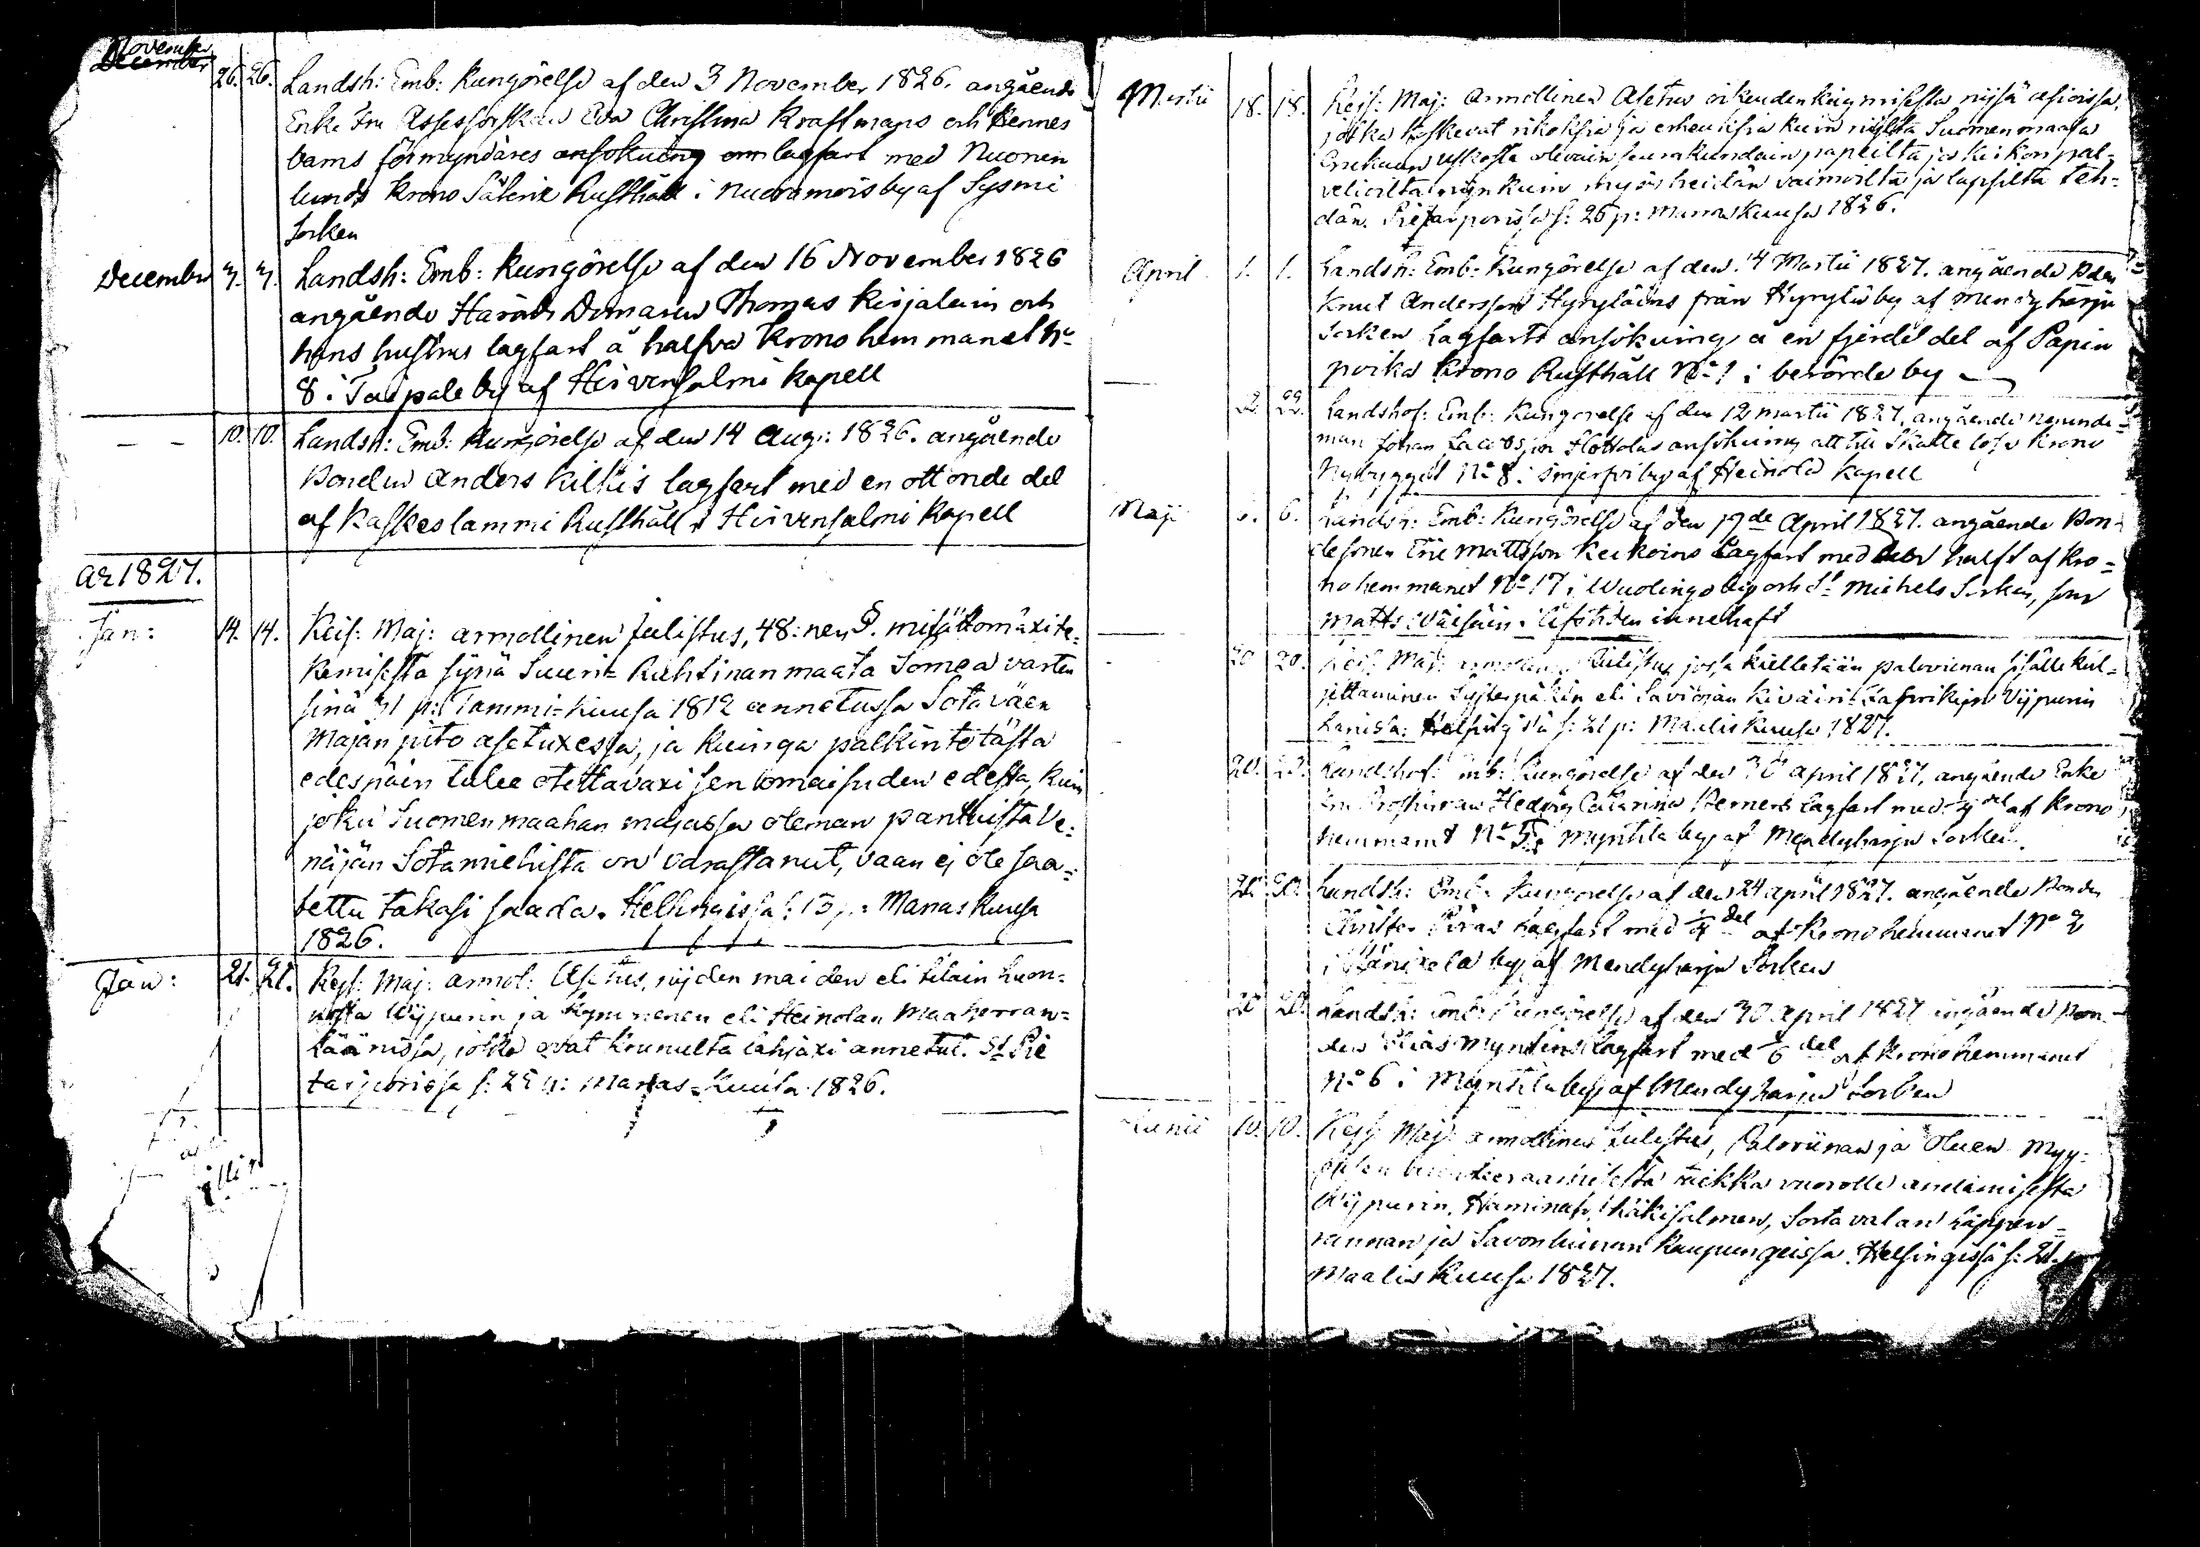 November
December
26. 26. Landsh: Emb: Kungörelse af den 3 November 1826. angående
Enke Fru Assessorskan Eva Christina Kraftmans och hennes
barns förmyndares ansökning om lagfart med Nuonen
lunds Krono Säterie Rusthåll i Nuoramois by af Sysmä
Socken
December 3. 3. Landsh: Emb: Kungörelse af den 16 November 1826
angående Härads Domaren Thomas Kirjalain och
hans hustrus lagfart å halfva Krono hemmanet No
8 i Taipale by af Hirvensalmi Kapell
— — 10. 10. Landsh: Emb: Kungörelse af den 14 Aug: 1826. angående
Bonden Anders Kilkis lagfart med en ottonde del
af Kaskeslammi Rusthåll i Hirvensalmi Kapell
År 1827.
Jan: 14. 14. Keis: Maj: armollinen Julistus, 48:nen §. mitättömäxi te-
kemisestä syinä Suuri- Ruhtinan maata Somea varten
sinä 31 p: Tammi-Kuusa 1812 annetussa Sotaväen
Majan pito asetuxessa, ja kuinga palkinto tästä
edespäin tulee otettavaxi sen omaisuden edestä, kuin
joku Suomen maahan majassa oleman pantuista Ve-
näjän Sotamiehistä on varastanut, vaan ej ole saa-
tettu takasi saada. Helsingissä s: 15 p: Marras Kuusa
1826.
Jan: 21. 21. Keis: Maj: armol: Asetus, nijden maiden eli tilain luon-
nosta Wijpurin ja Kyminenen eli Heinolan Maaherran-
Läänissä, jotka ovat Krunulta lahjaxi annetut. St Pie
tarporissa s: 25 p: Marras-Kuusa 1826.
Martii 18. 18. Keis: Maj: Armollinen Asetus oikeudenkäymisestä nijsä asioissa,
jotka koskevat rikoksia ja erheuksia kuin nijltä Suomenmaasa
Grekan Uskosta olevain seurakundain papeilta ja kirkon pal-
velioilta, nijnkuin myös heidän vaimoilta ja lapsilta teh-
dän. Pietarporissa s: 26 p: Marras Kuusa 1826.
April 1. 1. Landsh: Emb: Kungörelse af den 14 Martii 1827. angående Bden
Knut Andersson Hyryläins från Hyrylä by af Mendyharju
Socken Lagfarts ansökning å en fjerdedel af Papin
poika Krono Rusthåll No 1 i berörde by
— 22. Landshof: Emb: Kungörelse af den 12 Martii 1827, angående
man Johan Hottolas ansökning att till Skatte lösa Krono
Nybygget No 8 i by af Heinola Kapell
Maji 6. 6. Landsh: Emb: Kungörelse af den 17de April 1827. angående Bon-
desonen Eric Mattsson Keikoins Lagfart med den halft af Kro-
nohemmanet No 17 i Wuolingo by och St Michels Socken, som
Matts Wäisäin innehaft
20. 20. Keis: Maj: armollinen Julistus, jossa kielletään paloviinan sisälle kul-
jettaminen eli Wijpurin
Länissä: Helsingissä s: 21 p: Maalis Kuusa 1827.
20. Landshof: Emb: Kungörelse af den 30 April 1827. angående Enke
Fru Prostinnan Hedvig Catarina Berners Lagfart med del af Krono
hemmanet No 5 i Myntilä by af Mendyharju Socken.
20. 20. Landsh: Emb: Kungörelse af den 24 April 1827. angående Bonden
Christer Lagfart med del af Kronohemmanet No 2
i by af Mendyharju Socken
20 20. Landsh: Emb: Kungörelse af den 30 April 1827 angående Bon-
den Elias Myntins Lagfart med 6 del af Kronohemmanet
No 6 i Myntilä by af Mendyharju Socken
Junii 10. 10. Keis: Maj: armollinen Julistus, Paloviinan ja Oluen Myy-
vuorolle andamisesta
Wijpurin, Haminan, Käkisalmen, Sortavalan Lappen-
rannan ja Savonlinnan Kaupungeissa. Helsingissä s: 21.
Maalis Kuusa 1827.